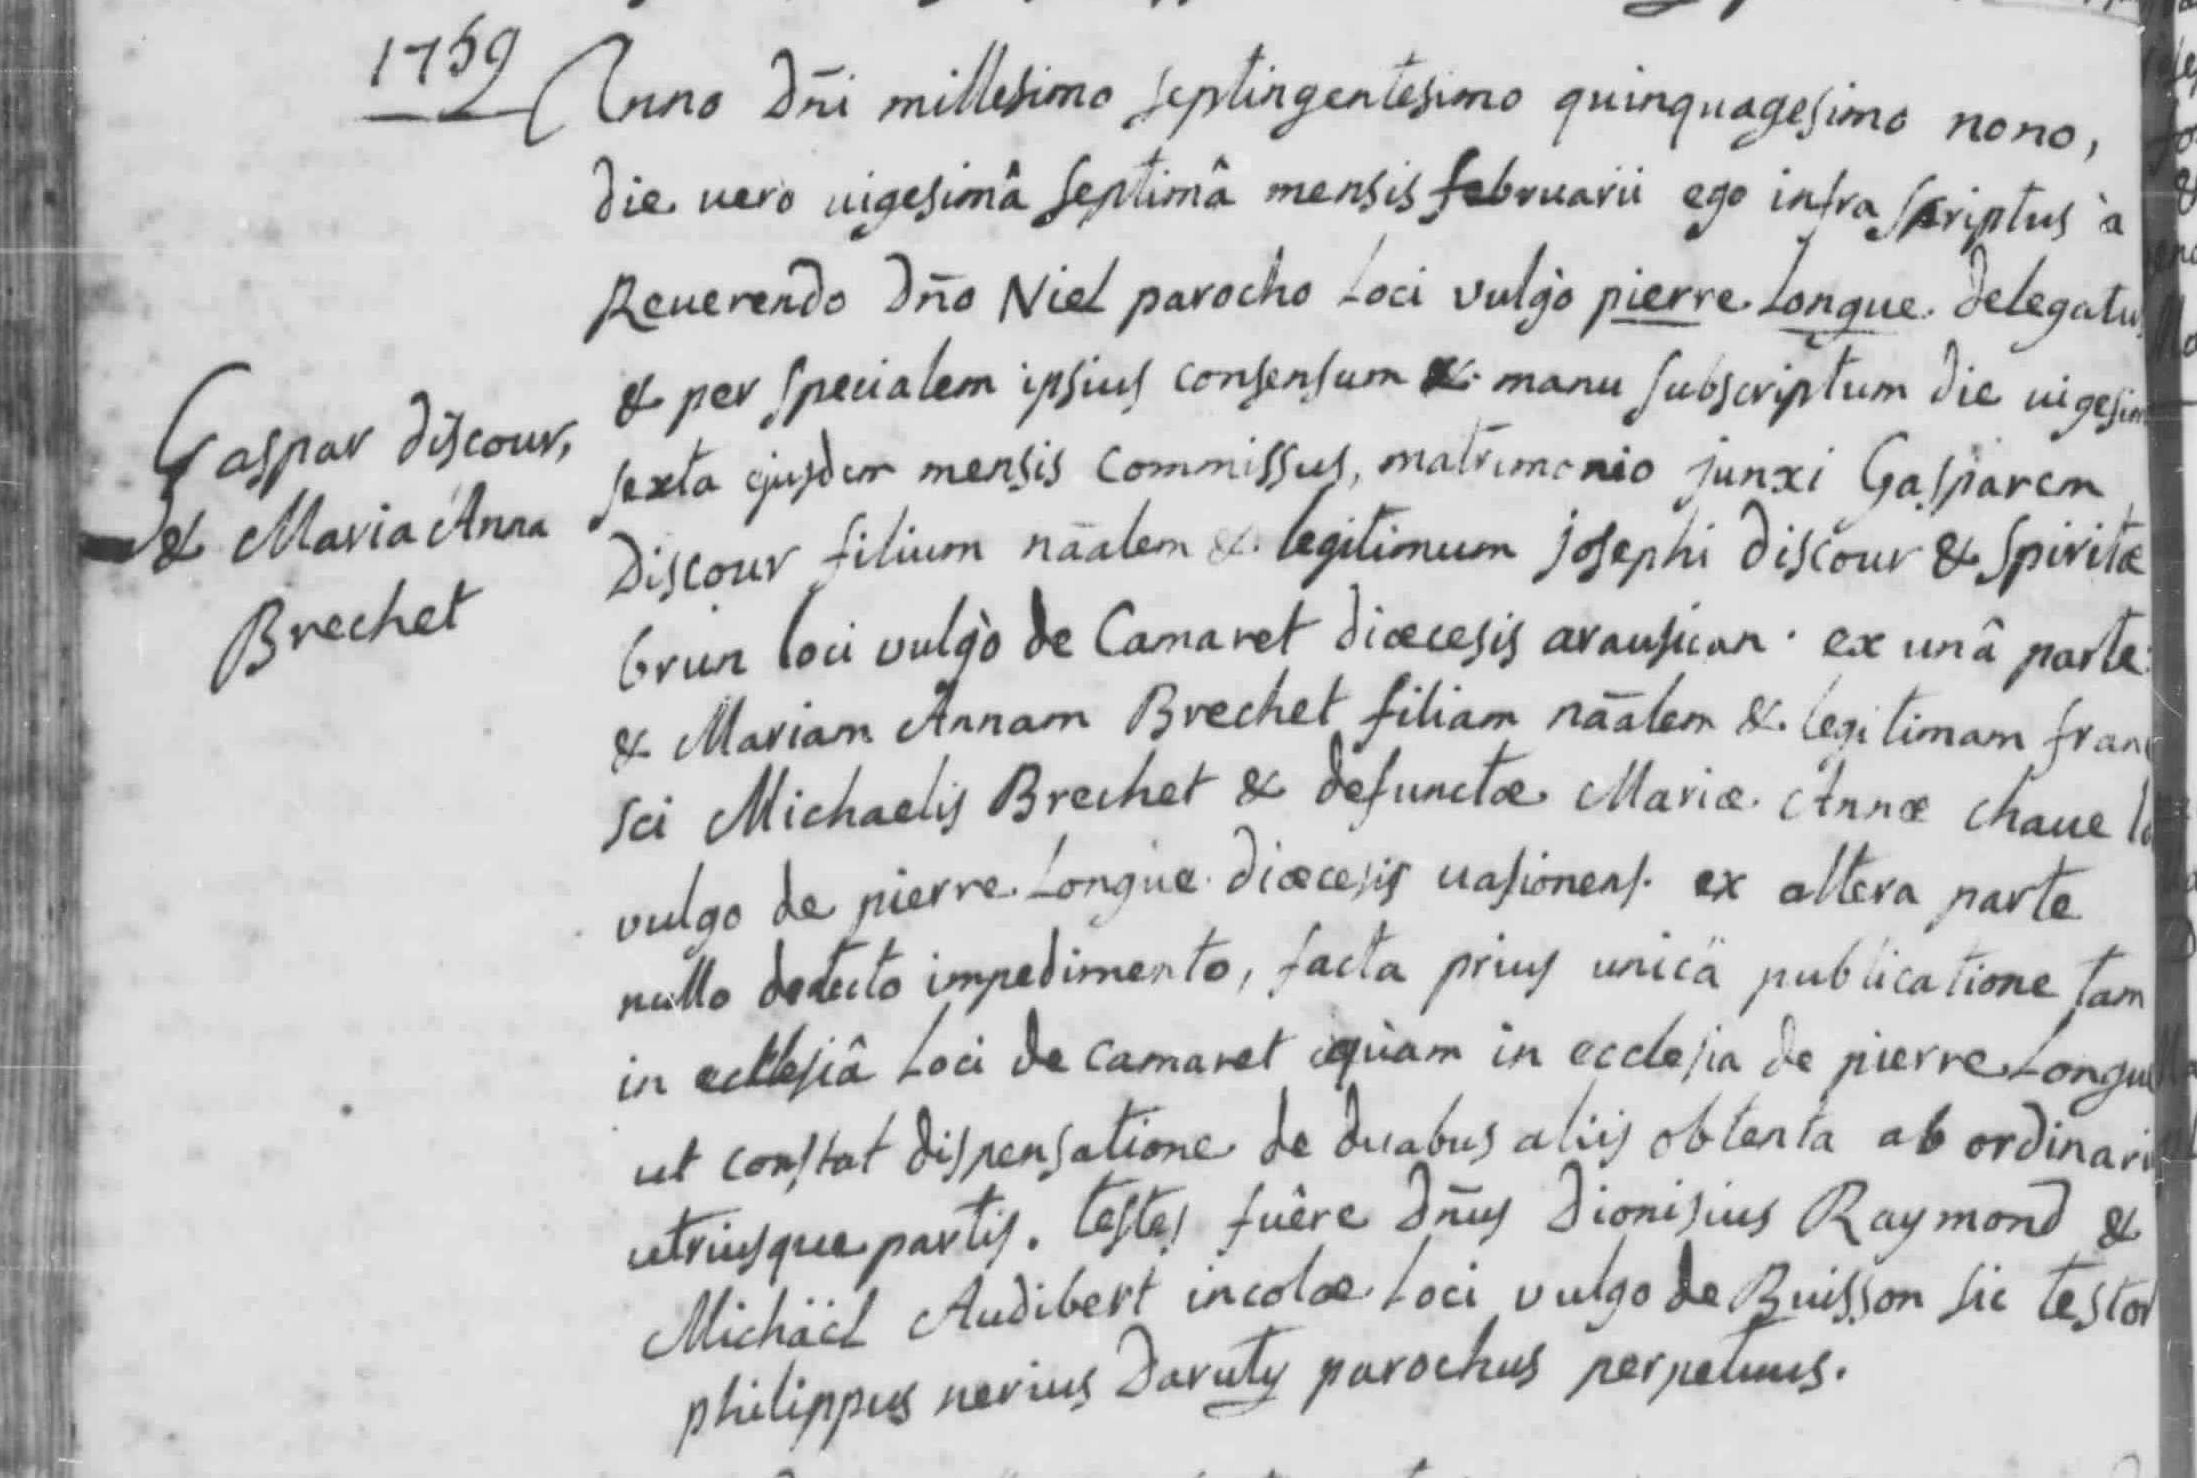 1759
Anno Dñi millesimo septingentesimo quinquagesimo nono,
die vero uigesimâ septimâ mensis februarii ego infra scriptus à
Reuerendo Dño Niel parocho Loci vulgò pierre Longue delegatu
& per specialem ipsius consensum & manu subscriptum die uigesim
sexta ejusdem mensis commissus, matrimonio junxi Gasparem
Discour filium nãalem & legitimum josephi discour & spiritæ
brun loci vulgò de Camaret diœcesis arausican. ex unâ parte
& Mariam Annam Brechet filiam nãalem & legitimam fran
sci Michaelis Brechet & defunctæ Mariæ Annæ chaue lo
vulgo de pierre Longue diœcesis uasionens. ex altera parte
nullo detecto impedimento, facta prius unicâ publicatione tam
in ecclesiâ Loci de camaret quam in ecclesia de pierre Longue
ut constat dispensatione de duabus aliis obtenta ab ordinari
utriusque partis. testes fuêre Dñus Dionisius Raymond &
Michäel Audibert incolæ Loci vulgo de Buisson sic testor
philippus nerius Daruty parochus perpetuus.
Gaspar discour,
& Maria Anna
Brechet